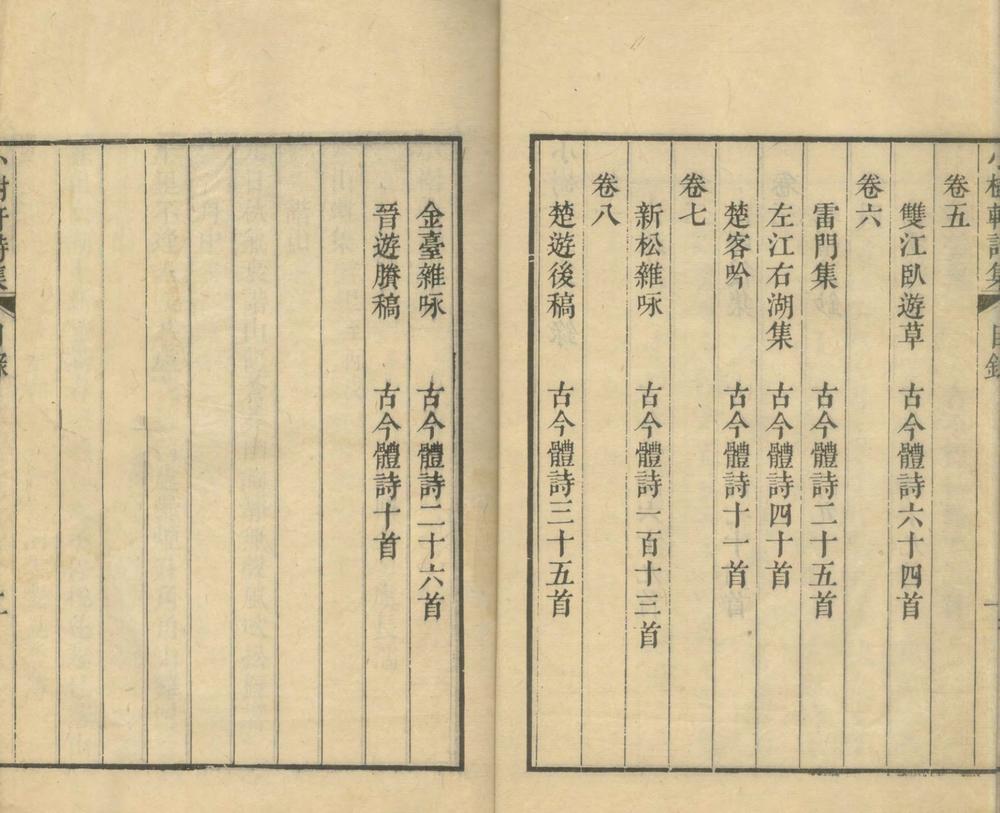 小樹軒詩集 目錄
卷五
雙江臥遊草 古今體詩六十四首
卷六
雷門集 古今體詩二十五首
左江右湖集 古今體詩四十首
楚客吟 古今體詩十一首
卷七
新松雜咏 古今體詩一百十三首
卷八
楚遊後稿 古今體詩三十五首
金臺雜咏 古今體詩二十六首
晉遊賸稿 古今體詩十首
小樹軒詩集 目錄